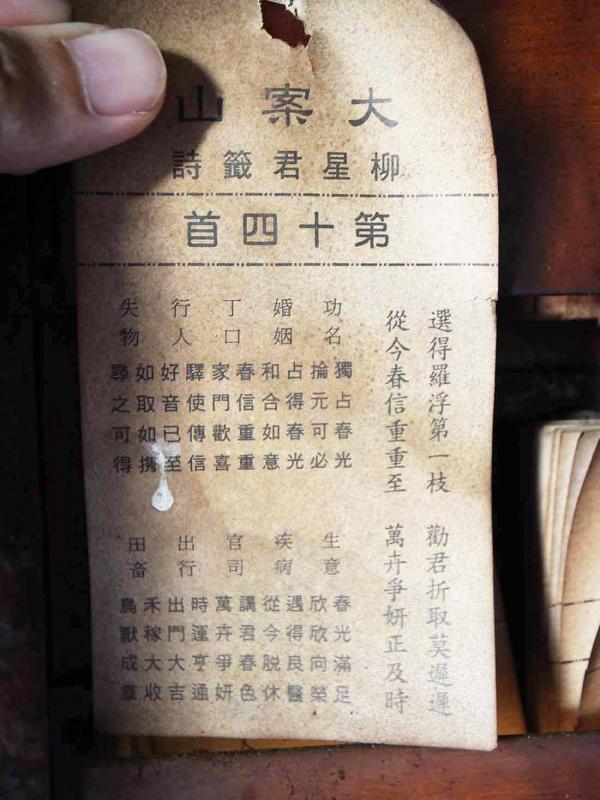 大案山
柳星君籤詩
第十四首
選得羅浮第一枝 勸君折取莫遲遲
從今春信重重至 萬卉爭妍正及時
功名
獨占春光
掄元可必
婚姻
占得春光
和合如意
丁口
春信重重
家門歡喜
行人
驛使傳信
好音已至
失物
如取如携
尋之可得
生意
春光滿足
欣欣向榮
疾病
遇得良醫
從今脱休
官司
講君春色
萬卉爭妍
出行
時運亨通
出門大吉
田畜
禾稼大收
鳥獸成羣